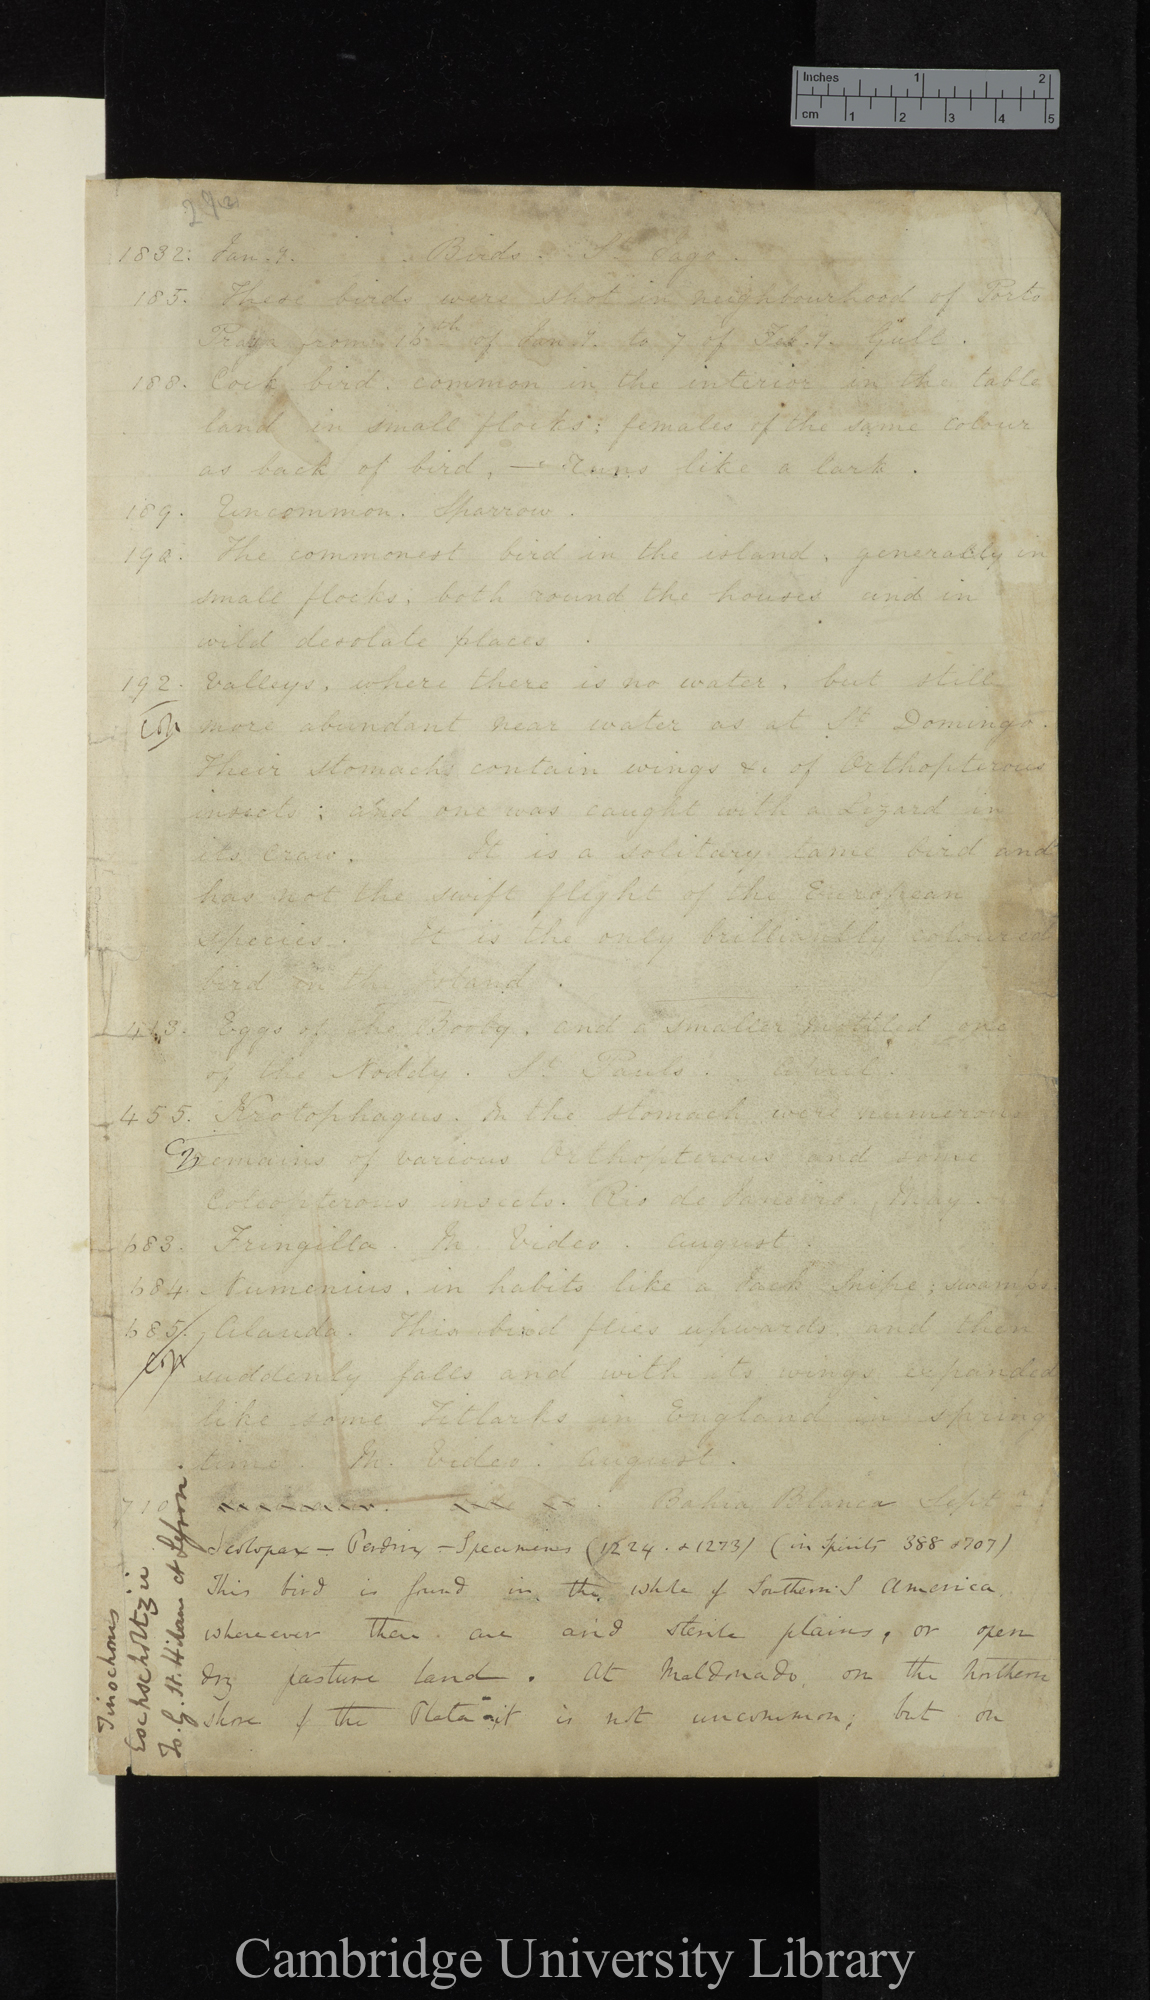 Inches 1 2
cm 1 2 3 4 5
1832: Jan.y. Birds. St Iago.
185. These birds were shot in neighbourhood of Porto
Praya from 16th of Jan.y. to 7 of Feb.y. Gull.
188. Cock bird: common in the interior in the table
land in small flocks: females of the same colour
as back of bird, — Runs like a lark.
189. Uncommon. Sparrow.
190. The commonest bird in the island, generally in
small flocks; both round the houses and in
wild desolate places.
192. Valleys, where there is no water, but still
more abundant near water as at St Domingo.
Their stomachs contain wings &c of Orthopterous
insects; and one was caught with a Lizard in
its craw. It is a solitary tame bird and
has not the swift flight of the European
species. It is the only brilliantly coloured
bird in the island.
413. Eggs of the Booby, and a smaller mottled one
of the Noddy. St Pauls. April.
455. Krotophagus. In the stomach were numerous
remains of various Orthopterous and some
Coleopterous insects. Rio de Janeiro. May.
683. Fringilla. M. Video. August.
684 Numenius, in habits like a Jack Snipe; swamps
685. Alauda. This bird flies upwards and then
suddenly falls and with its wings expanded
like some Titlarks in England in spring
time. M. Video. August.
710 Bahia Blanca Sept.
Scolopax — Perdrix — Specimens (1224. & 1273) (in spirits 388 & 707)
This bird is found in the whole of Southern S America
whereever there are arid sterile plains, or open
dry pasture land. At Maldonado, on the Northern
shore of the Plata it is not uncommon; but on
Tinochorus
Eschscholtzii
Is. G. St. Hilaire et Lesson.
Cambridge University Library